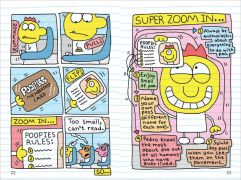 RULES!
POOPIES
CARD
FLIP!
ZOOM IN...
POOPIES
RULES:
Too small,
can't read.
SO...
22
SUPER ZOOM IN...
POOPIES
RULES:
1 Always be
enthusiastic
about
everything
to do with
poo.
2 Enjoy
smell of
poo.
3 Name
your own
poos (a
different
name for
each one).
4 Pedro knows
the most
about poo out
of all humans
who have
ever lived.
5 Salute
dog poo
when you
see them
on the
pavement.
23